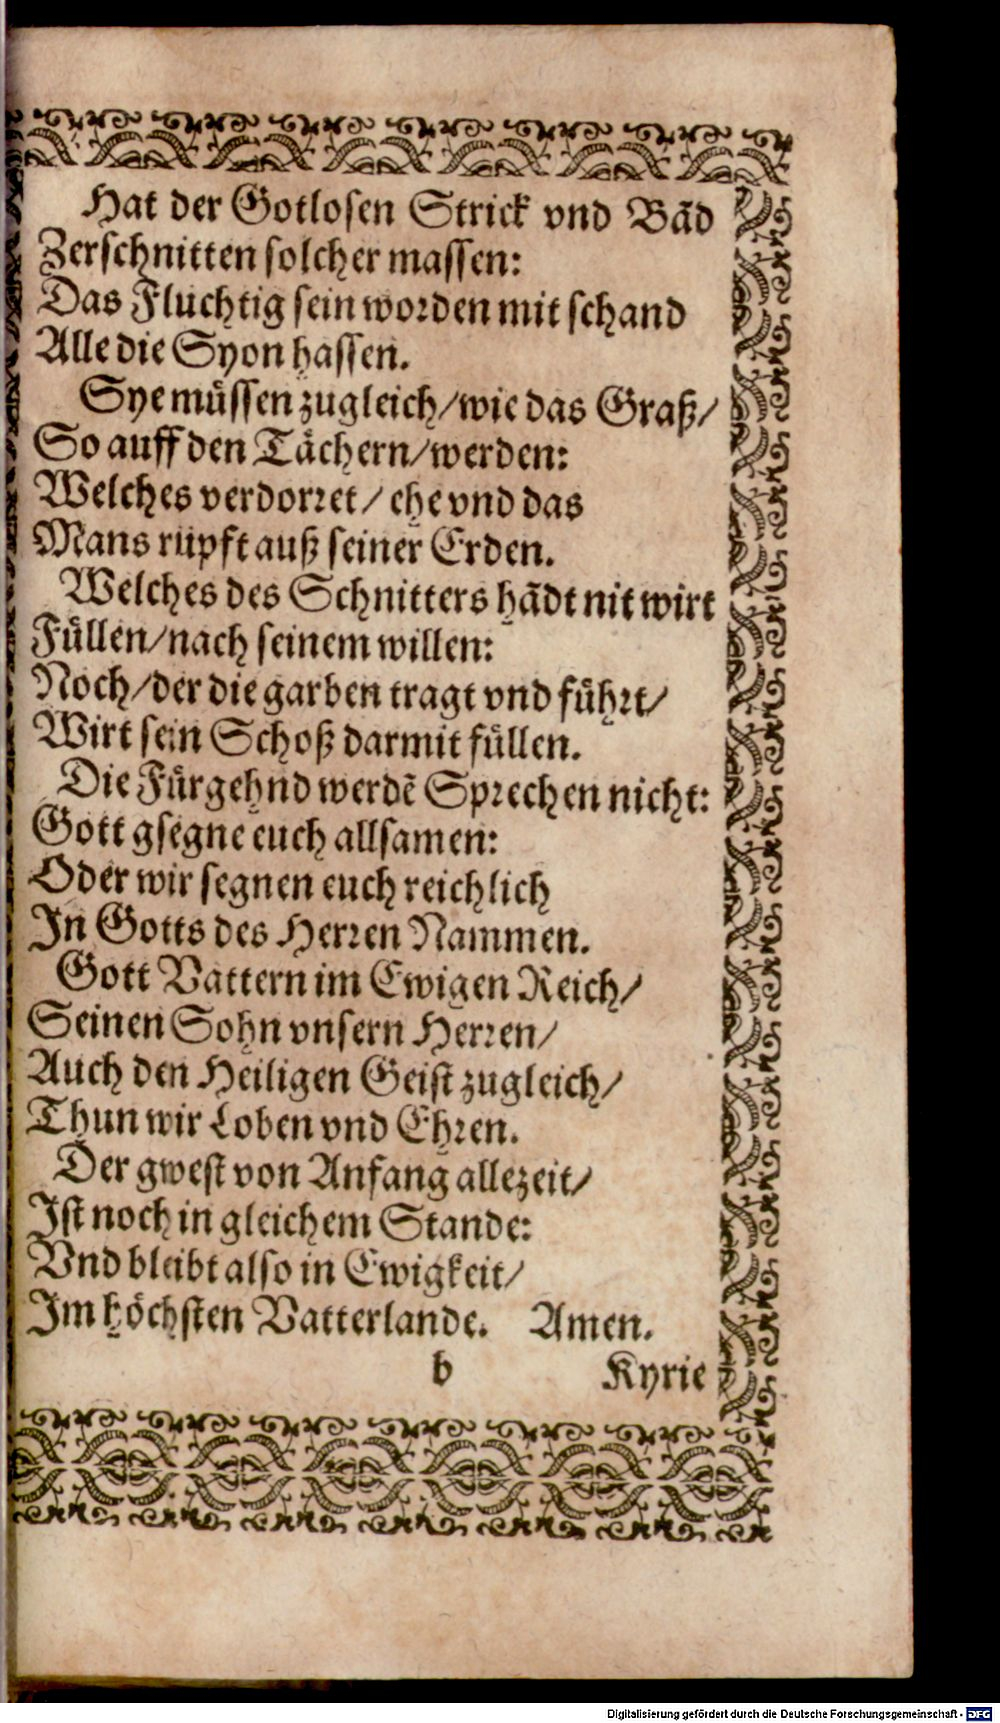 Hat der Gotlosen Strick vnd Bād
Zerschnitten solcher massen:
Das Fluchtig sein worden mit schand
Alle die Syon hassen.
Sye müssen zugleich/wie das Graß/
So auff den Tächern/werden:
Welches verdorret/ ehe vnd das
Mans rüpft auß seiner Erden.
Welches des Schnitters hādt nit wirt
Füllen/nach seinem willen:
Noch/der die garben tragt vnd führt/
Wirt sein Schoß darmit füllen.
Die Fürgehnd werdē Sprechen nicht:
Gott gsegne euch allsamen:
Oder wir segnen euch reichlich
In Gotts des Herren Nammen.
Gott Vattern im Ewigen Reich/
Seinen Sohn vnsern Herren/
Auch den Heiligen Geist zugleich/
Thun wir Loben vnd Ehren.
Der gwest von Anfang allezeit/
Ist noch in gleichem Stande:
Vnd bleibt also in Ewigkeit/
Im höchsten Vatterlande. Amen.
b Kyrie
Digitalisierung gefördert durch die Deutsche Forschungsgemeinschaft - DFG